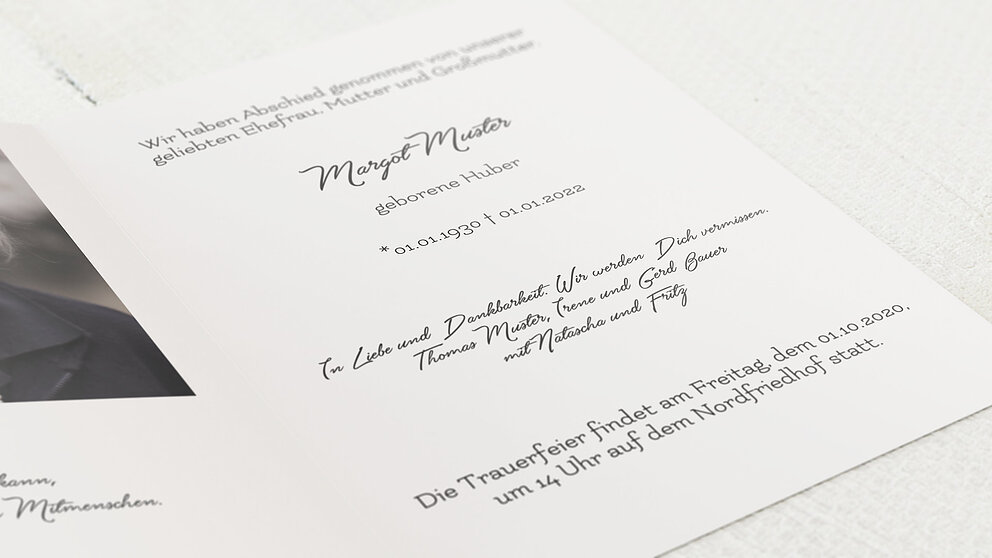 Wir haben Abschied genommen von unserer
geliebten Ehefrau, Mutter und Großmutter.
Margot Muster
geborene Huber
* 01.01.1930 † 01.01.2022
In Liebe und Dankbarkeit. Wir werden Dich vermissen.
Thomas Muster, Irene und Gerd Bauer
mit Natascha und Fritz
Die Trauerfeier findet am Freitag, dem 01.10.2020,
um 14 Uhr auf dem Nordfriedhof statt.
kann,
Mitmenschen.